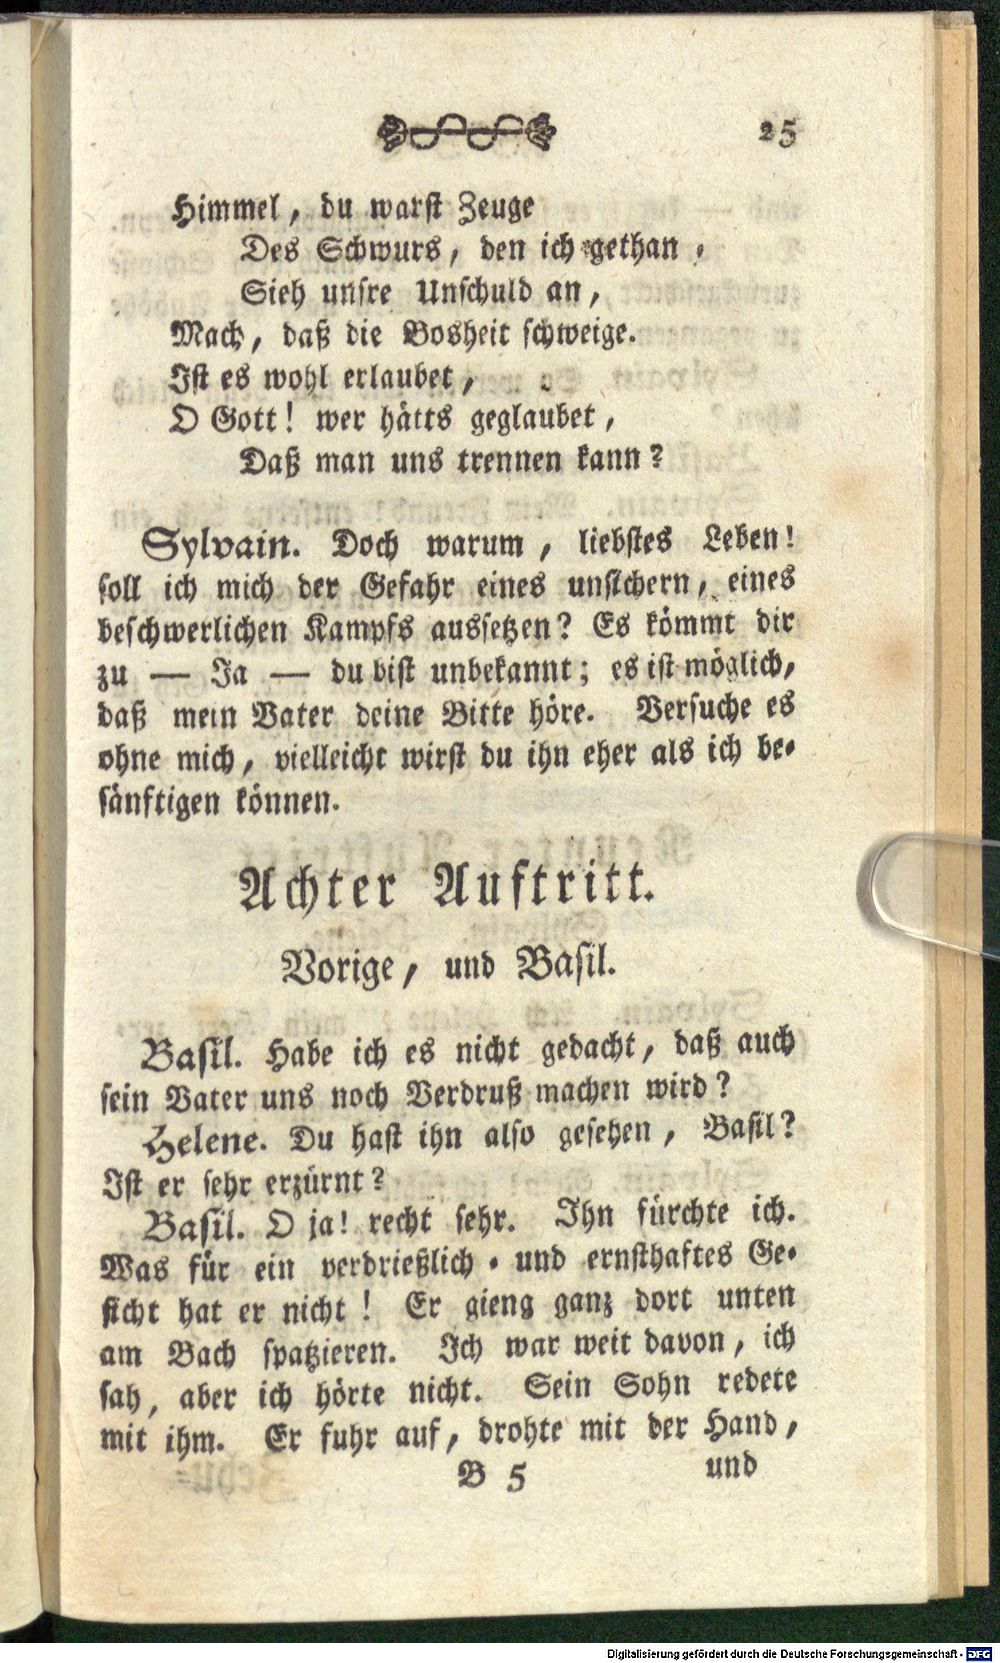 25
Himmel, du warst Zeuge
Des Schwurs, den ich gethan,
Sieh unsre Unschuld an,
Mach, daß die Bosheit schweige.
Ist es wohl erlaubet,
O Gott! wer hätts geglaubet,
Daß man uns trennen kann?
Sylvain. Doch warum, liebstes Leben!
soll ich mich der Gefahr eines unsichern, eines
beschwerlichen Kampfs aussetzen? Es kömmt dir
zu — Ja — du bist unbekannt; es ist möglich,
daß mein Vater deine Bitte höre. Versuche es
ohne mich, vielleicht wirst du ihn eher als ich be-
sänftigen können.
Achter Auftritt.
Vorige, und Basil.
Basil. Habe ich es nicht gedacht, daß auch
sein Vater uns noch Verdruß machen wird?
Helene. Du hast ihn also gesehen, Basil?
Ist er sehr erzürnt?
Basil. O ja! recht sehr. Ihn fürchte ich.
Was für ein verdrießlich- und ernsthaftes Ge-
sicht hat er nicht! Er gieng ganz dort unten
am Bach spatzieren. Ich war weit davon, ich
sah, aber ich hörte nicht. Sein Sohn redete
mit ihm. Er fuhr auf, drohte mit der Hand,
B 5 und
Digitalisierung gefördert durch die Deutsche Forschungsgemeinschaft - DFG